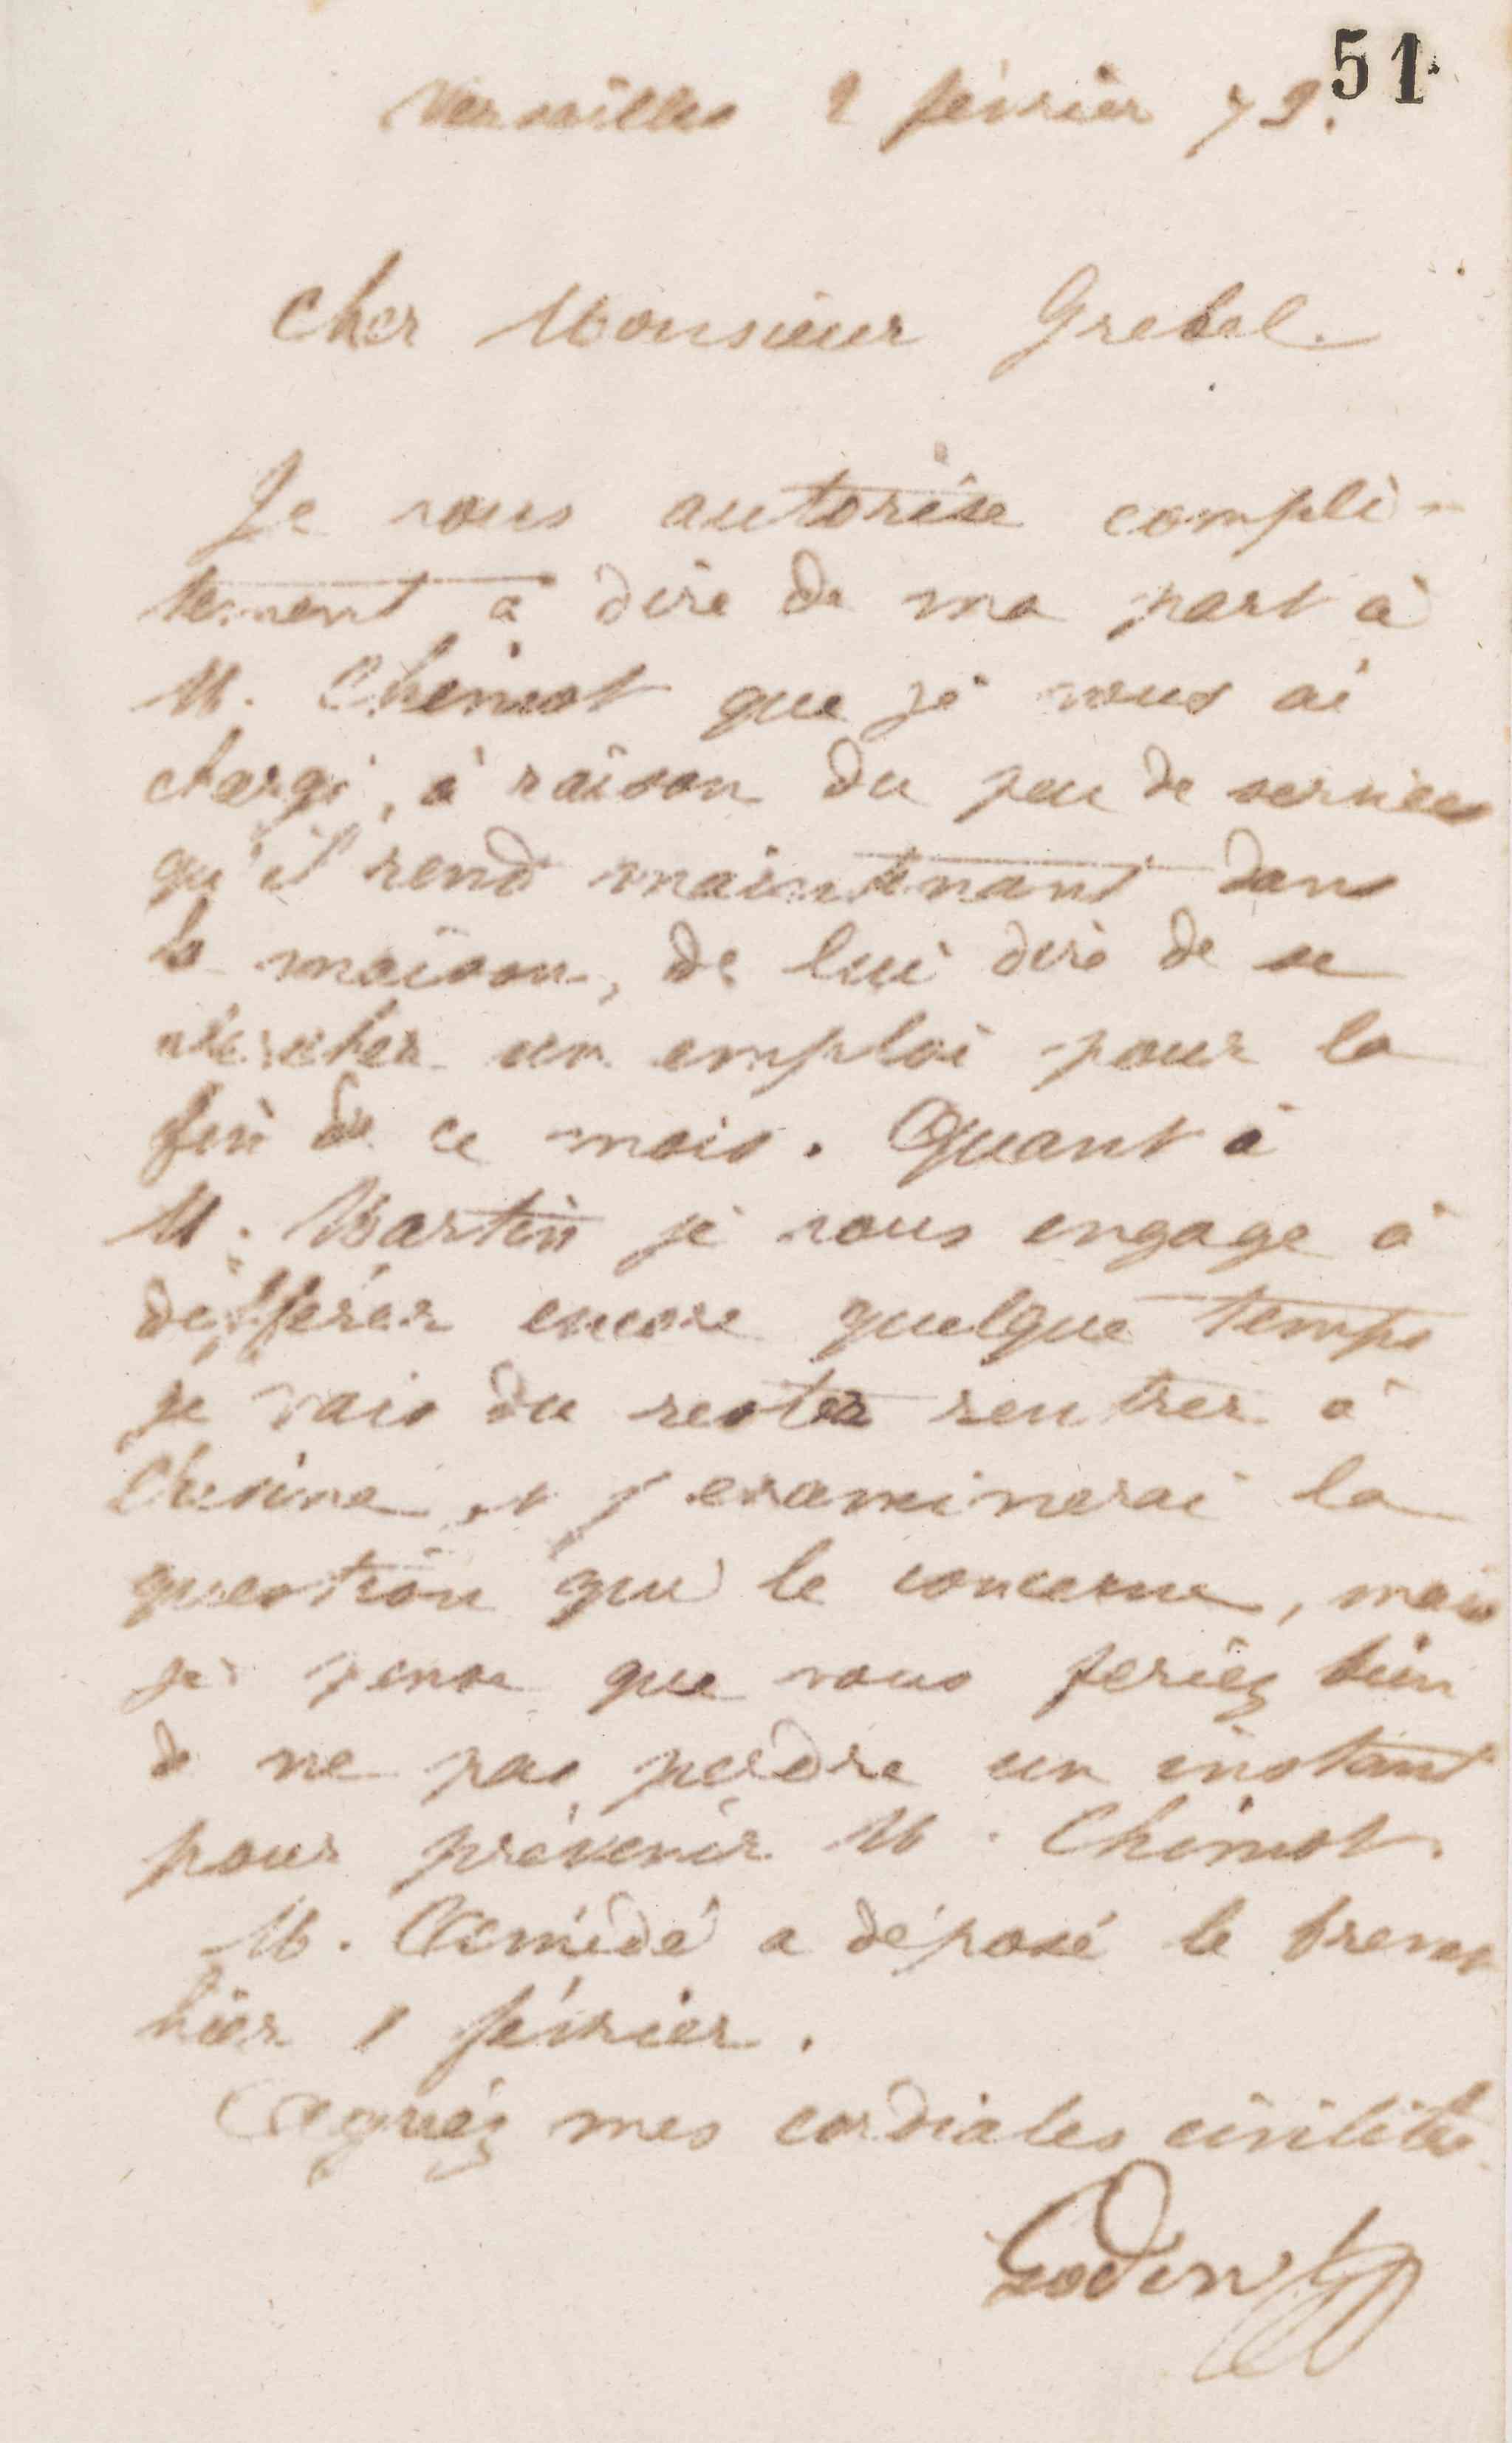 51
Versailles 2 février 79.
Cher Monsieur Grebel.
Je vous autorise complè-
tement à dire de ma part à
M. Chimot que je vous ai
chargé, à raison du peu de services
qu'il rend maintenant dans
la maison, de lui dire de se
chercher un emploi pour la
fin de ce mois. Quant à
M. Martin je vous engage à
différer encore quelque temps
je vais du reste rentrer à
et j'examinerai la
question qui le concerne, mais
je pense que vous feriez bien
de ne pas perdre un instant
pour prévenir M. Chimot.
M. Amédé a déposé le brevet
hier 1 février.
Agréez mes cordiales civilités.
Godin